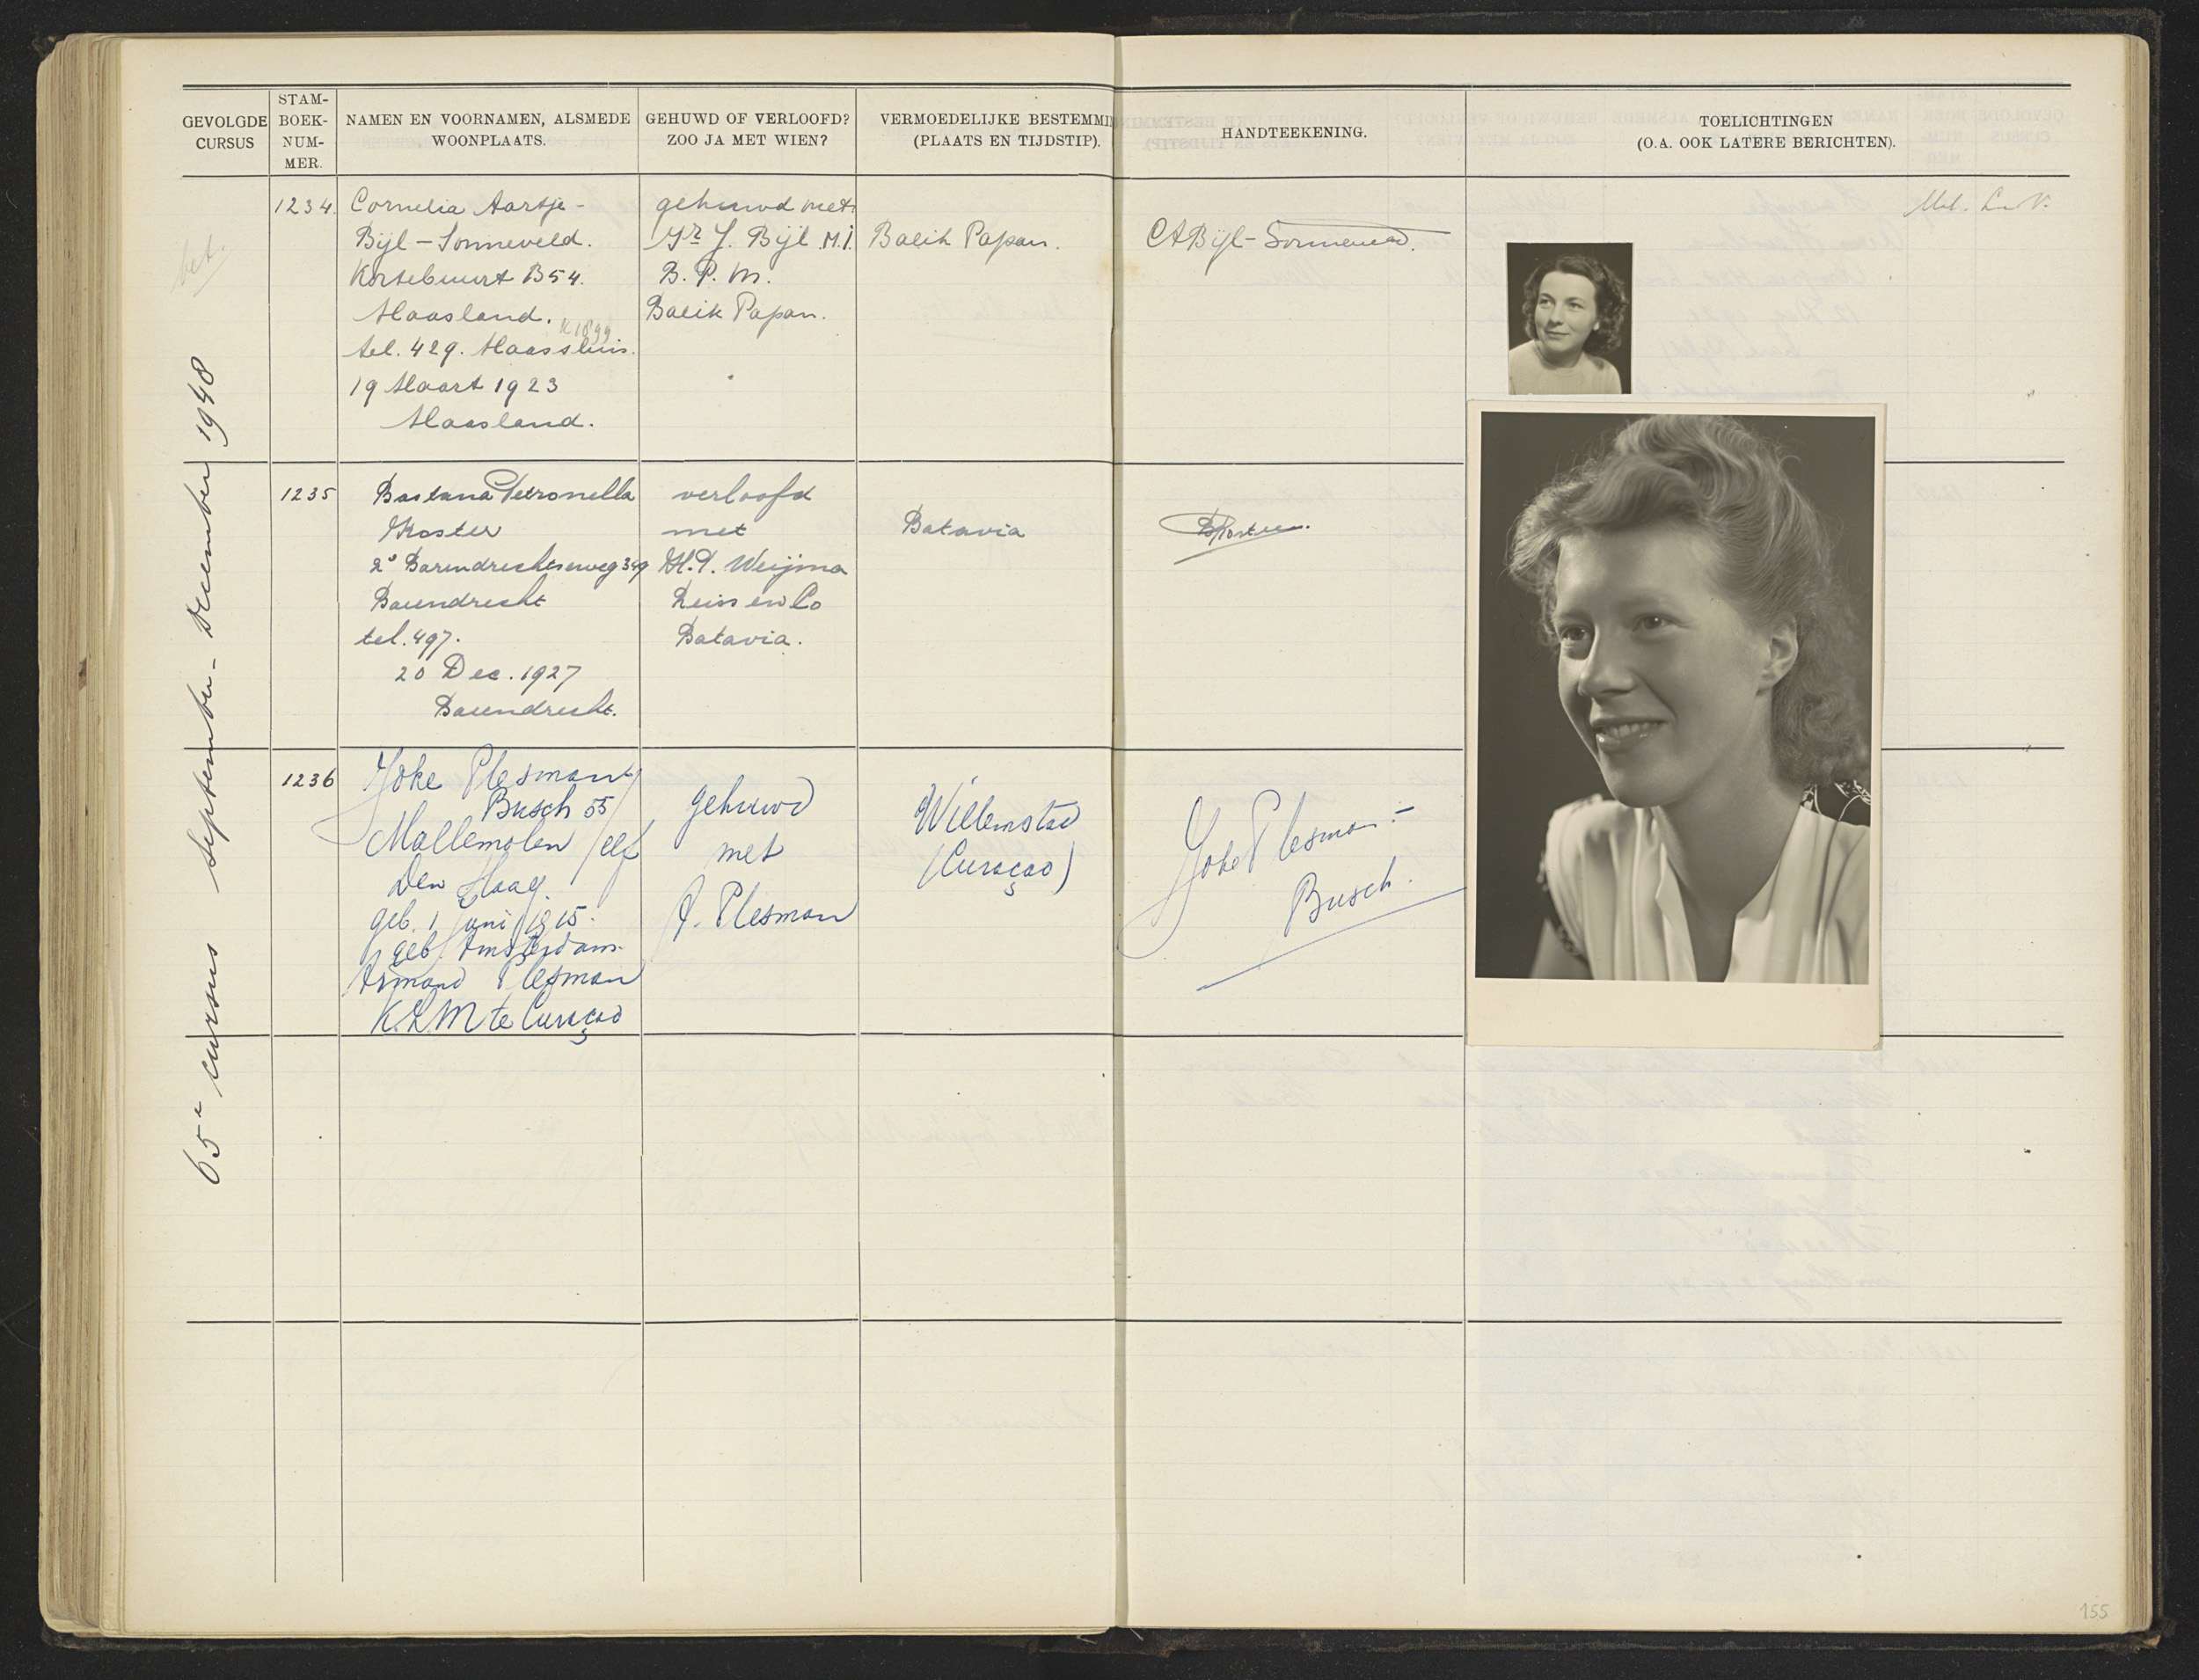 GEVOLGDE CURSUS
STAM-BOEK-NUM-MER.
NAMEN EN VOORNAMEN, ALSMEDE WOONPLAATS.
GEHUWD OF VERLOOFD? ZOO JA MET WIEN?
VERMOEDELIJKE BESTEMMIN (PLAATS EN TIJDSTIP).
HANDTEEKENING.
TOELICHTINGEN (O.A. OOK LATERE BERICHTEN).
65e cursus september - december 1948
bet.
1234.
Cornelia Aartje -
Bijl - Sonneveld.
Kortebuurt B54.
Maasland.
tel. 429. Maassluis.
19 Maart 1923
Maasland.
gehuwd met
Ir J. Bijl M.I.
B.P.M.
Balik Papan.
Balik Papan.
CABijl-Sonneveld.
1235
Bastiana Petronella
Koster
2e Barendrechtseweg 349
Barendrecht
tel. 497.
20 Dec. 1927
Barendrecht.
verloofd
met
H.P. Weijma
Reiss en Co
Batavia.
Batavia
BPKoster.
1236
Joke Plesman
Busch 55
Mallemolen
Den Haag.
geb. 1 Juni 1915.
geb. Amsterdam.
Armand Plesman
K.L.M te Curaçao
gehuwd
met
A. Plesman
Willemstad
(Curaçao)
Joke Plesman -
Busch.
155